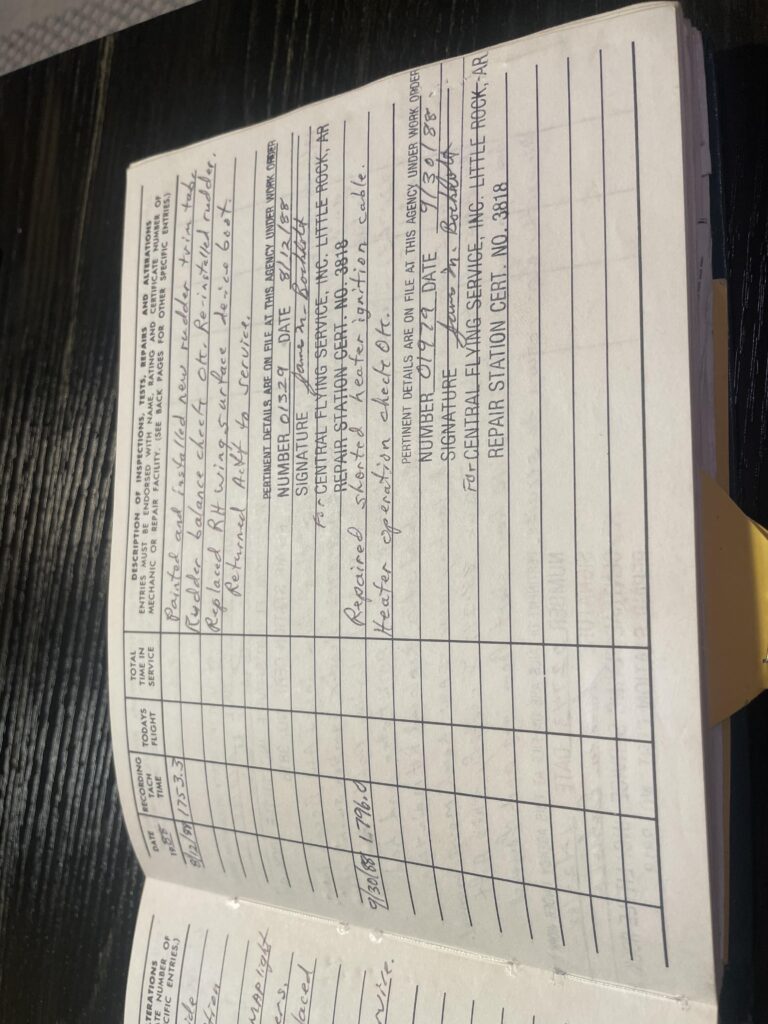 DATE
19 88
RECORDING
TACH
TIME
TODAYS
FLIGHT
TOTAL
TIME IN
SERVICE
DESCRIPTION OF INSPECTIONS, TESTS, REPAIRS AND ALTERATIONS
ENTRIES MUST BE ENDORSED WITH NAME, RATING AND CERTIFICATE NUMBER OF
MECHANIC OR REPAIR FACILITY. (SEE BACK PAGES FOR OTHER SPECIFIC ENTRIES.)
8/12/88 1753.3 Painted and installed new rudder trim tab
Rudder balance check OK. Re-installed rudder.
Replaced RH wing surface deice boot.
Returned A/C to service.
PERTINENT DETAILS ARE ON FILE AT THIS AGENCY UNDER WORK ORDER
NUMBER 01329 DATE 8/12/88
SIGNATURE James M.
For CENTRAL FLYING SERVICE, INC. LITTLE ROCK, AR
REPAIR STATION CERT. NO. 3818
9/30/88 1,796.0 Repaired shorted heater ignition cable.
Heater operation check OK.
PERTINENT DETAILS ARE ON FILE AT THIS AGENCY UNDER WORK ORDER
NUMBER 01979 DATE 9/30/88
SIGNATURE James M.
For CENTRAL FLYING SERVICE, INC. LITTLE ROCK, AR
REPAIR STATION CERT. NO. 3818
TERATIONS
TE NUMBER OF
CIFIC ENTRIES.)
ide
tion
MAP light
ers.
laced
rvice.